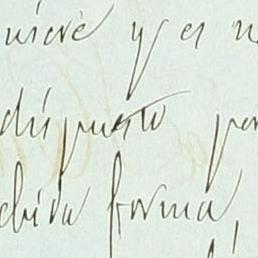 uiere y es n
dispuesto por
ebida forma,